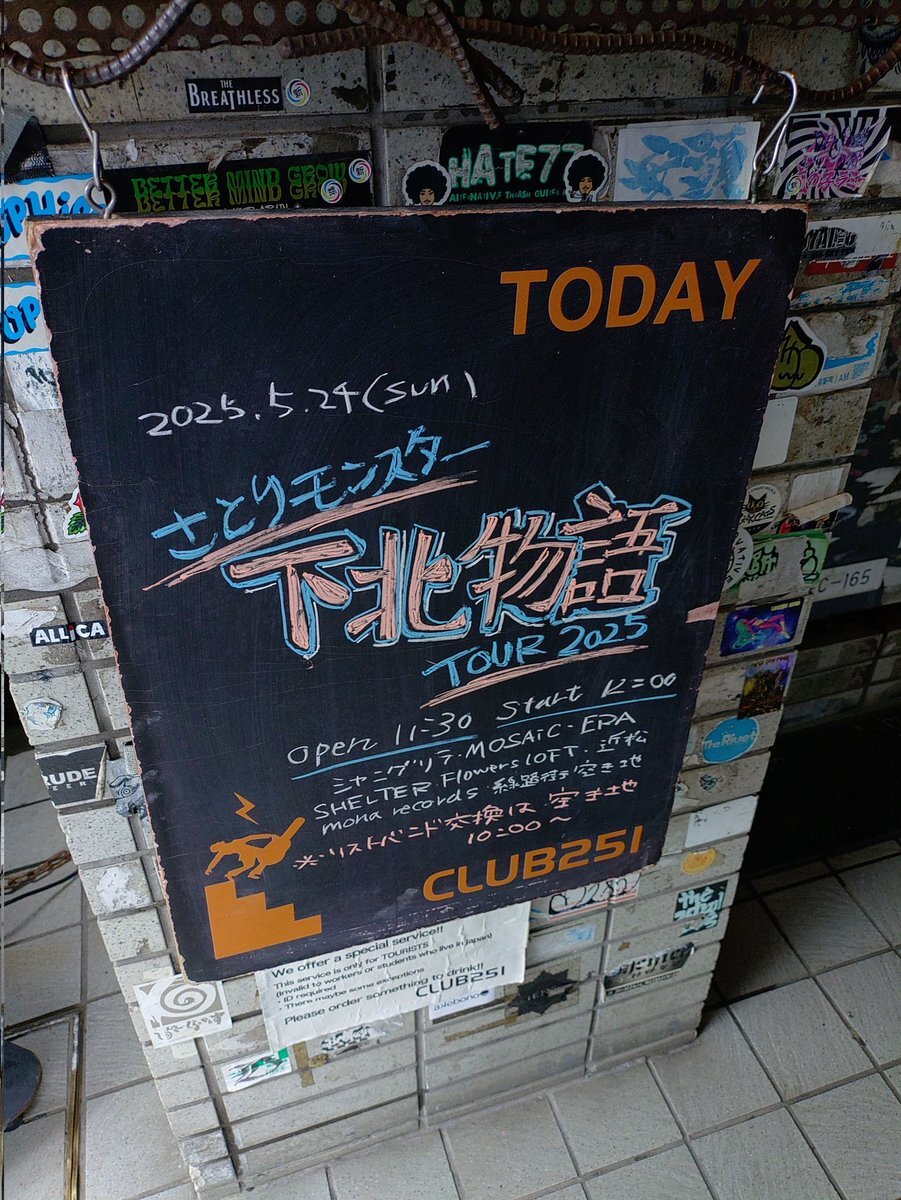 THE
BREATHLESS
BETTER MIND GROW
HATE77
TODAY
2025.5.24(sun)
さとりモンスター
下北物語
TOUR 2025
open 11:30 start 12:00
シャングリラ・MOSAiC・ERA
SHELTER・Flowers LOFT・近松
mona records・線路街空き地
※リストバンド交換は、空き地
10:00〜
CLUB251
ALLiCA
RUDE
C-165
The Rivet
We offer a special service!!
This service is only for TOURISTS
(Invalid to workers or students who live in japan)
- ID required
- There maybe some exceptions
Please order something to drink!!
CLUB251
akebono